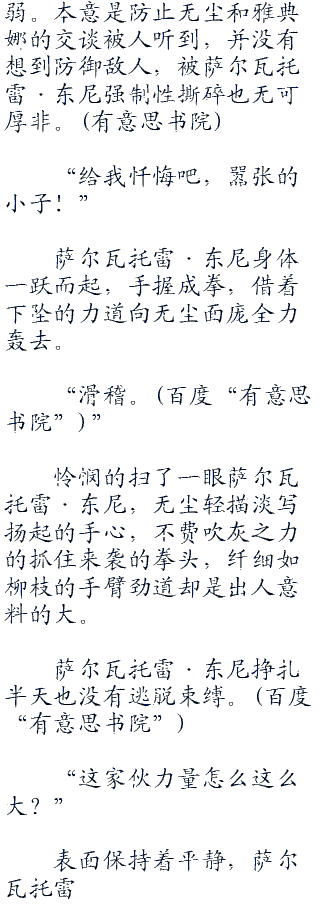 弱。本意是防止无尘和雅典
娜的交谈被人听到，并没有
想到防御敌人，被萨尔瓦托
雷·东尼强制性撕碎也无可
厚非。(有意思书院)
“给我忏悔吧，嚣张的
小子！”
萨尔瓦托雷·东尼身体
一跃而起，手握成拳，借着
下坠的力道向无尘面庞全力
轰去。
“滑稽。(百度“有意思
书院”)”
怜悯的扫了一眼萨尔瓦
托雷·东尼，无尘轻描淡写
扬起的手心，不费吹灰之力
的抓住来袭的拳头，纤细如
柳枝的手臂劲道却是出人意
料的大。
萨尔瓦托雷·东尼挣扎
半天也没有逃脱束缚。(百度
“有意思书院”)
“这家伙力量怎么这么
大？”
表面保持着平静，萨尔
瓦托雷